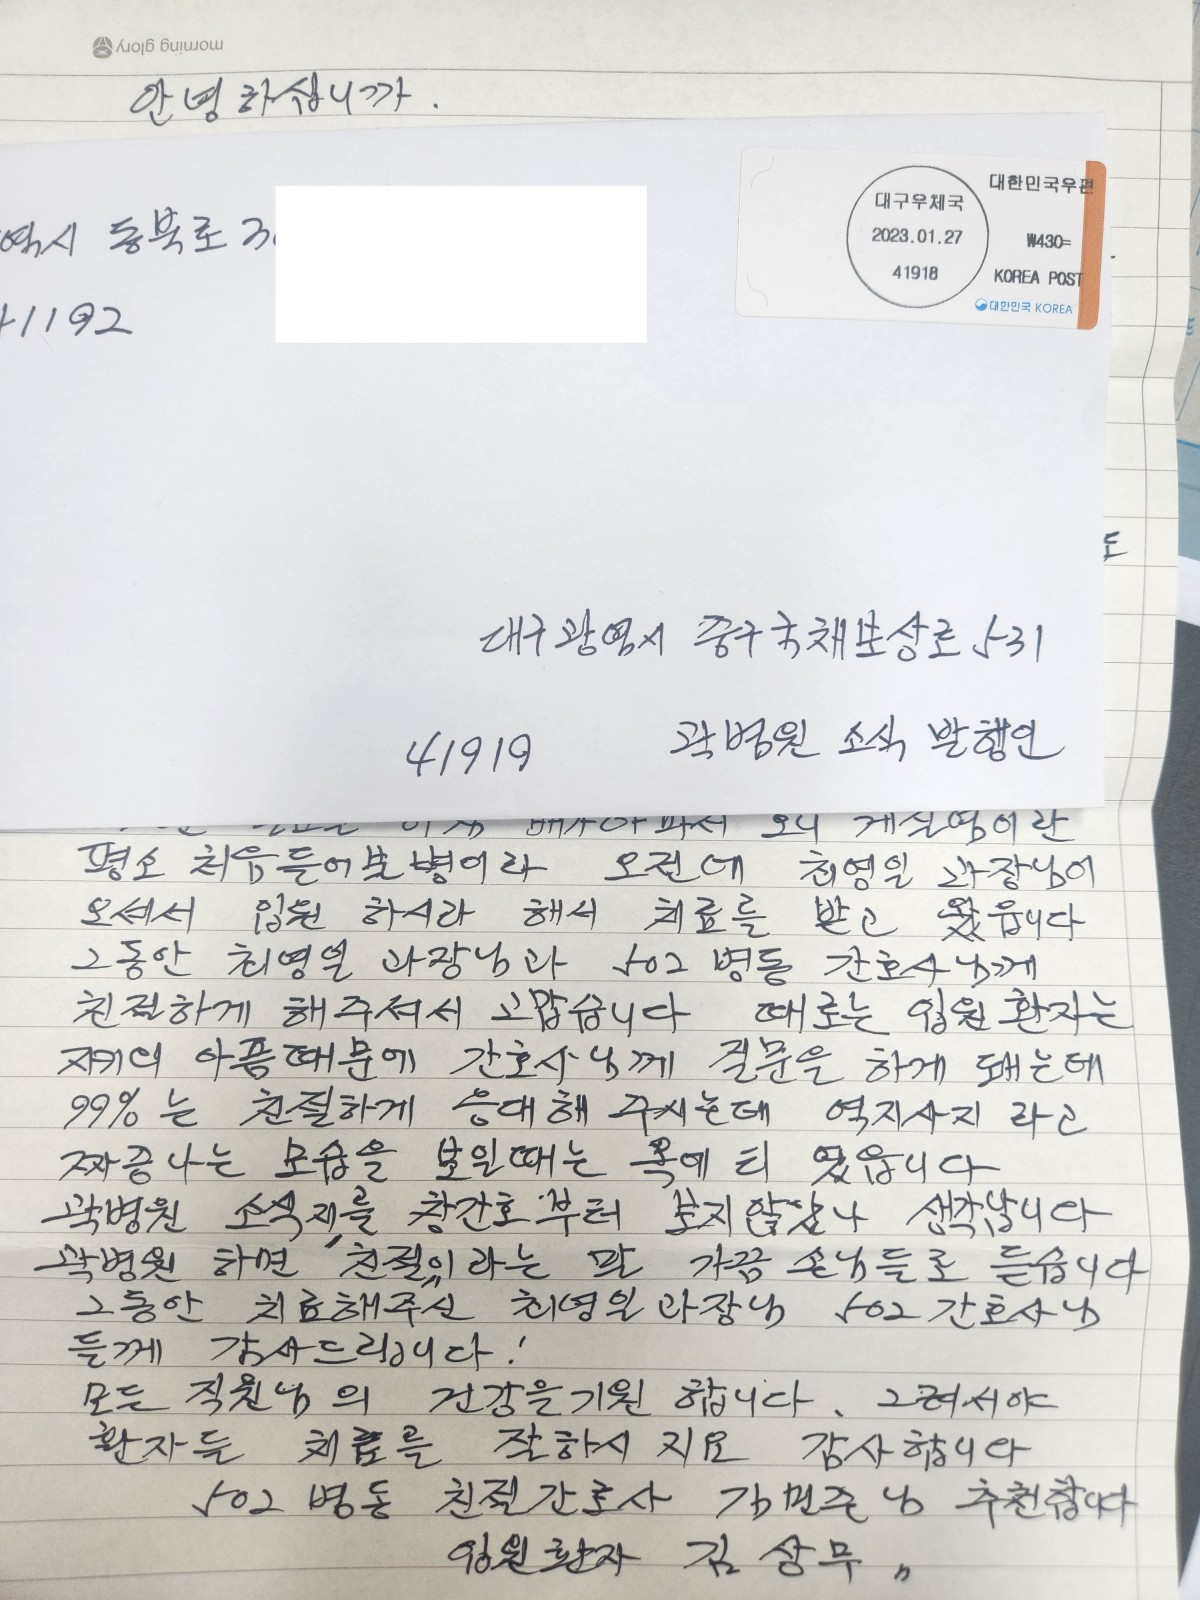 morning glory
안녕하십니까.
역시 동북로 3
1192
대구우체국
2023.01.27
41918
대한민국우편
₩430=
KOREA POST
대한민국 KOREA
도
대구광역시 중구국채보상로 531
41919 곽병원 소식 발행인
배가아파서 오니 게실염이란
평소 처음들어본병이라 오전에 최영일 과장님이
오셔서 입원 하시라 해서 치료를 받고 왔읍니다
그동안 최영일 과장님과 502 병동 간호사님께
친절하게 해주셔서 고맙습니다 때로는 입원환자는
자기의 아픔때문에 간호사님께 질문을 하게 돼는데
99%는 친절하게 응대해 주시는데 역지사지 라고
짜증나는 모습을 보일때는 옥에 티 였읍니다
곽병원 소식지를 창간호부터 보지않았나 생각납니다
곽병원 하면 "친절"이라는 말 가끔 손님들로 듣습니다
그동안 치료해주신 최영일과장님 502간호사님
들께 감사드립니다!
모든 직원님의 건강을기원 합니다. 그려서야
환자들 치료를 잘하시 지요 감사합니다
502 병동 친절간호사 김민준님 추천합니다
입원환자 김상무 "